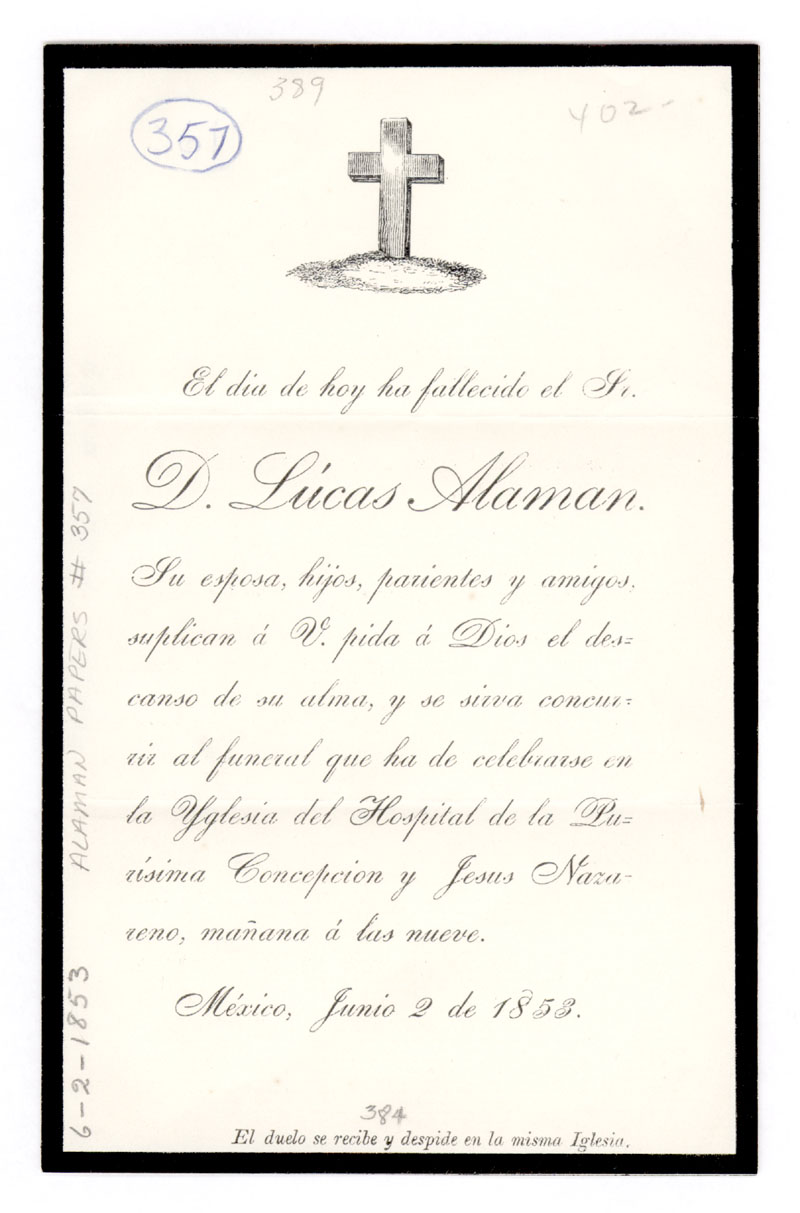 389
402-
357
El dia de hoy ha fallecido el Sr.
D. Lúcas Alaman.
Su esposa, hijos, parientes y amigos,
suplican á V. pida á Dios el des=
canso de su alma, y se sirva concur=
rir al funeral que ha de celebrarse en
la Yglesia del Hospital de la Pu=
rísima Concepcion y Jesus Naza-
reno, mañana á las nueve.
México, Junio 2 de 1853.
384
El duelo se recibe y despide en la misma Iglesia.
6-2-1853 ALAMAN PAPERS # 357